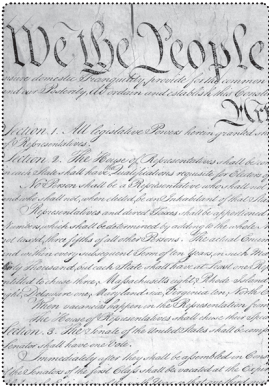 We the People
insure domestic Tranquility, provide for the common
and our Posterity, do ordain and establish this Const
Art
Section. 1. All legislative Powers herein granted sh
of Representatives.
Section. 2. The House of Representatives shall be com
in each State shall have Qualifications requisite for Electors of
No Person shall be a Representative who shall not
and who shall not, when elected, be an Inhabitant of that Sta
Representatives and direct Taxes shall be apportioned
Numbers, which shall be determined by adding to the whole
not taxed, three fifths of all other Persons. The actual Enume
and within every subsequent Term of ten Years, in such Man
thirty Thousand, but each State shall have at Least one Rep
entitled to chuse three, Massachusetts eight, Rhode Island
eight, Delaware one, Maryland six, Virginia ten, North C
When vacancies happen in the Representation from
The House of Representatives shall chuse their Spea
Section. 3. The Senate of the United States shall be comp
Senator shall have one Vote.
Immediately after they shall be assembled in Cons
of the Senators of the first Class shall be vacated at the Expi